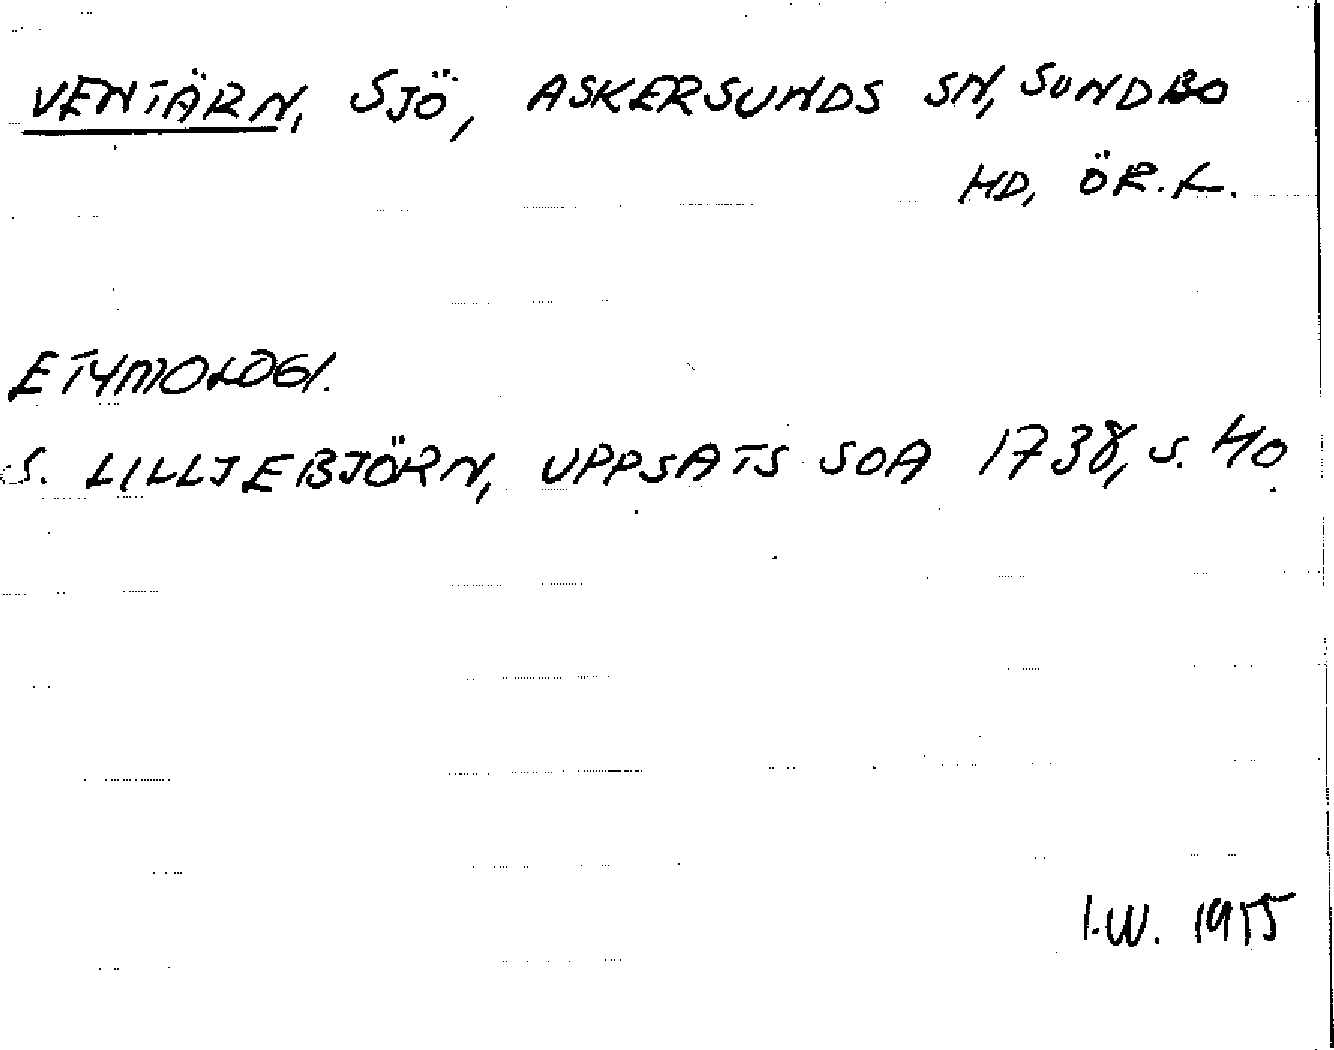 VENTÄRN, SJÖ, ASKERSUNDS SN, SUNDBO
HD, ÖR.L.
ETYMOLOGI.
S. LILLJEBJÖRN, UPPSATS SOA 1738, S. 40
I.W. 1955